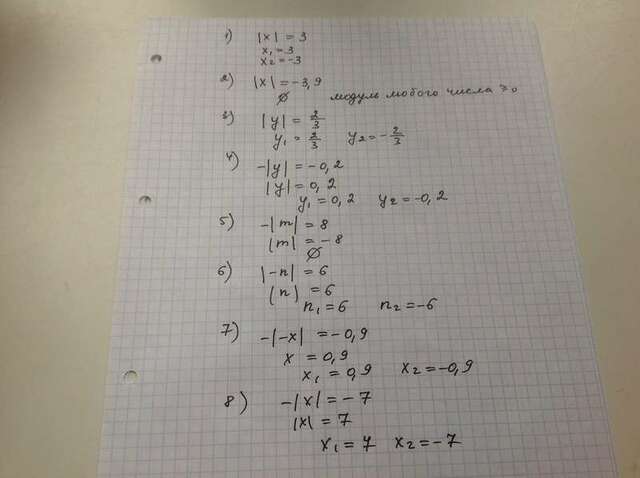 1) |x| = 3
x₁ = 3
x₂ = -3
2) |x| = -3,9
∅ модуль любого числа ≥0
3) |y| = 2/3
y₁ = 2/3 y₂ = -2/3
4) -|y| = -0,2
|y| = 0,2
y₁ = 0,2 y₂ = -0,2
5) -|m| = 8
|m| = -8
∅
6) |-n| = 6
|n| = 6
n₁ = 6 n₂ = -6
7) -|-x| = -0,9
x = 0,9
x₁ = 0,9 x₂ = -0,9
8) -|x| = -7
|x| = 7
x₁ = 7 x₂ = -7